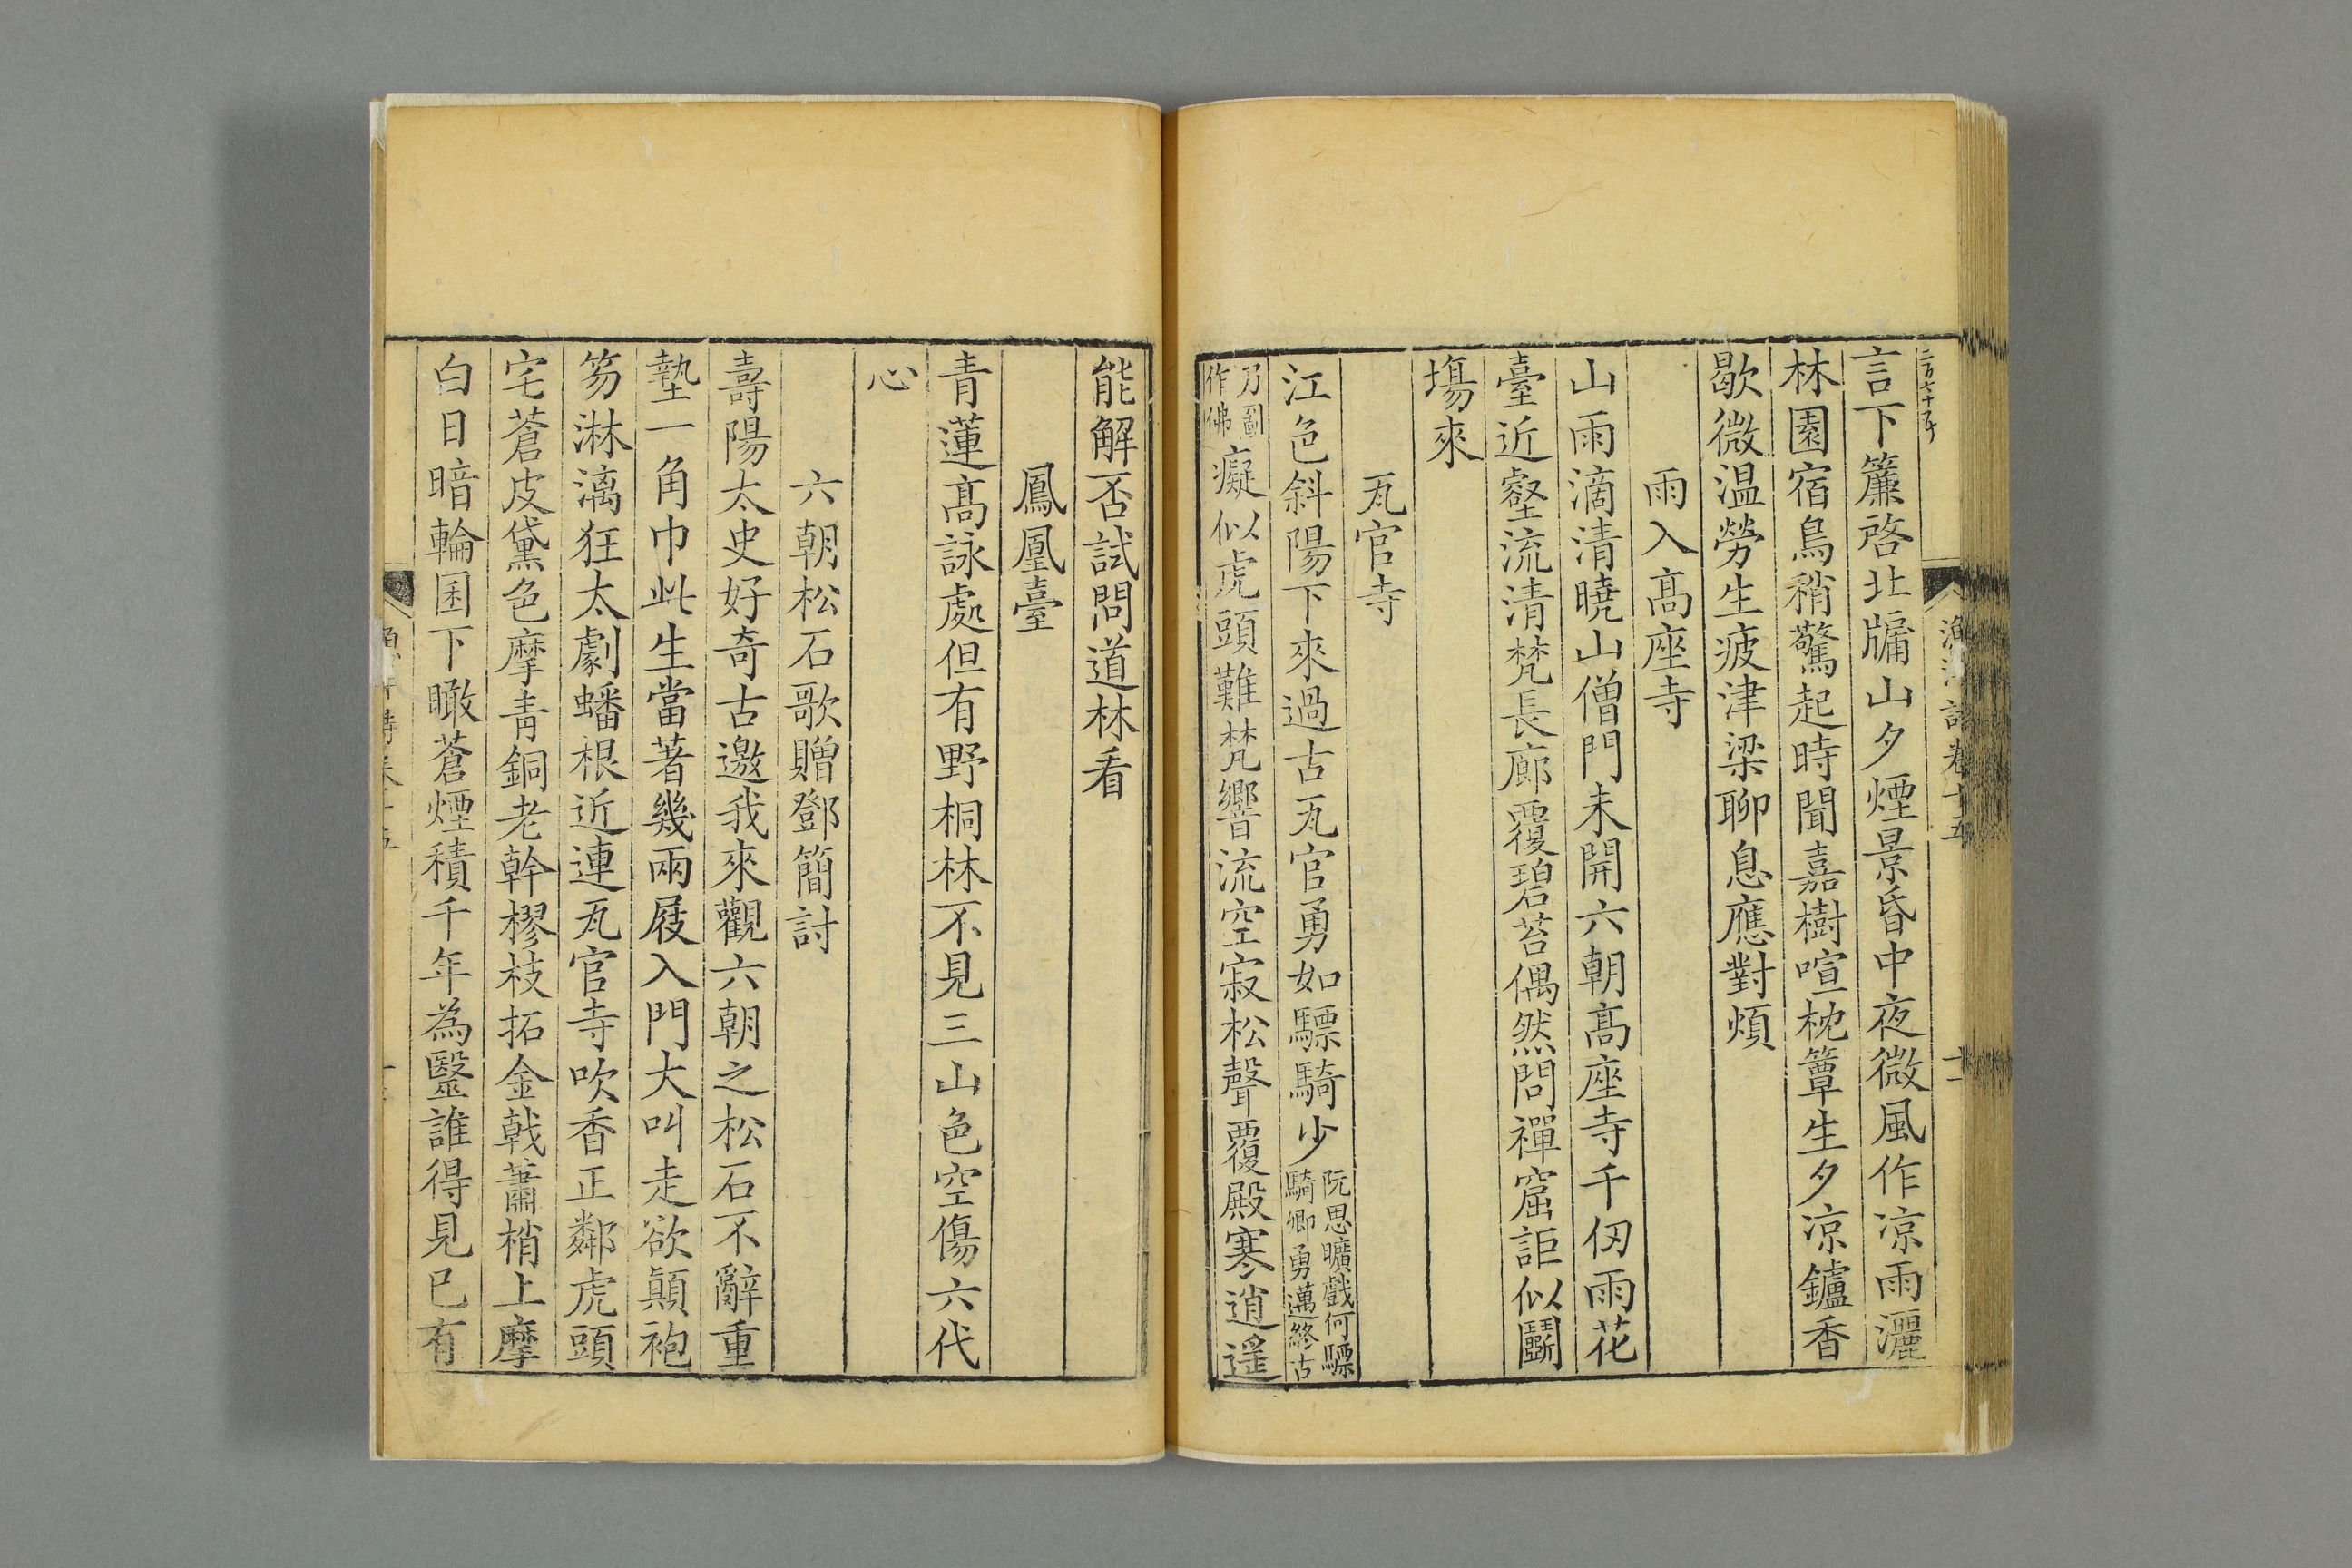 言下簾啓北牖山夕煙景昏中夜微風作凉雨灑
林園宿鳥稍驚起時聞嘉樹喧枕簟生夕凉鑪香
歇微温勞生疲津梁聊息應對煩
雨入髙座寺
山雨滴清曉山僧門未開六朝髙座寺千仞雨花
臺近壑流清梵長廊覆碧苔偶然問禪窟詎似鬬
塲來
瓦官寺
江色斜陽下來過古瓦官勇如驃騎少阮思曠戲何驃騎卿勇邁終古
乃圖作佛癡似虎頭難梵響流空寂松聲覆殿寒逍遥
能解否試問道林看
鳳凰臺
青蓮髙詠處但有野桐林不見三山色空傷六代
心
六朝松石歌贈鄧簡討
壽陽太史好奇古邀我來觀六朝之松石不辭重
墊一角巾此生當著幾兩屐入門大叫走欲顛袍
笏淋漓狂太劇蟠根近連瓦官寺吹香正鄰虎頭
宅蒼皮黛色摩青銅老幹樛枝拓金戟蕭梢上摩
白日暗輪囷下瞰蒼煙積千年為翳誰得見已有